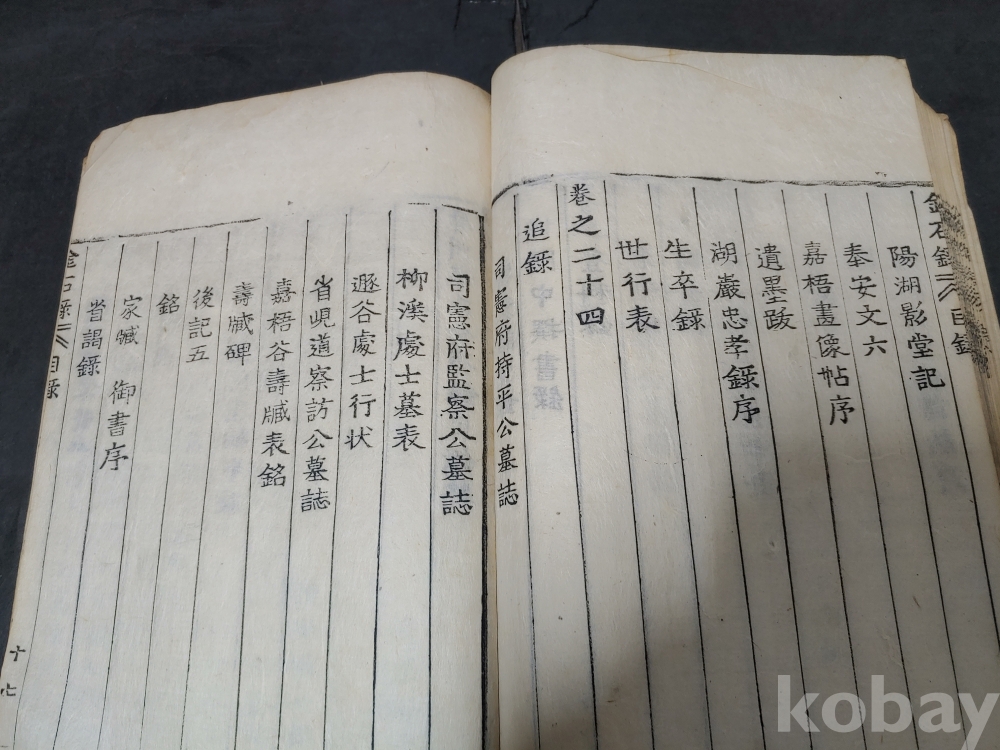 金石錄 目錄
陽湖影堂記
奉安文六
嘉梧畫像帖序
遺墨跋
湖巖忠孝錄序
生卒錄
世行表
卷之二十四
追錄
司憲府持平公墓誌
司憲府監察公墓誌
柳溪處士墓表
遯谷處士行状
省峴道察訪公墓誌
嘉梧谷壽臧表銘
壽臧碑
後記五
銘
家臧 御書序
省謁錄
金石錄 目錄
十七
kobay